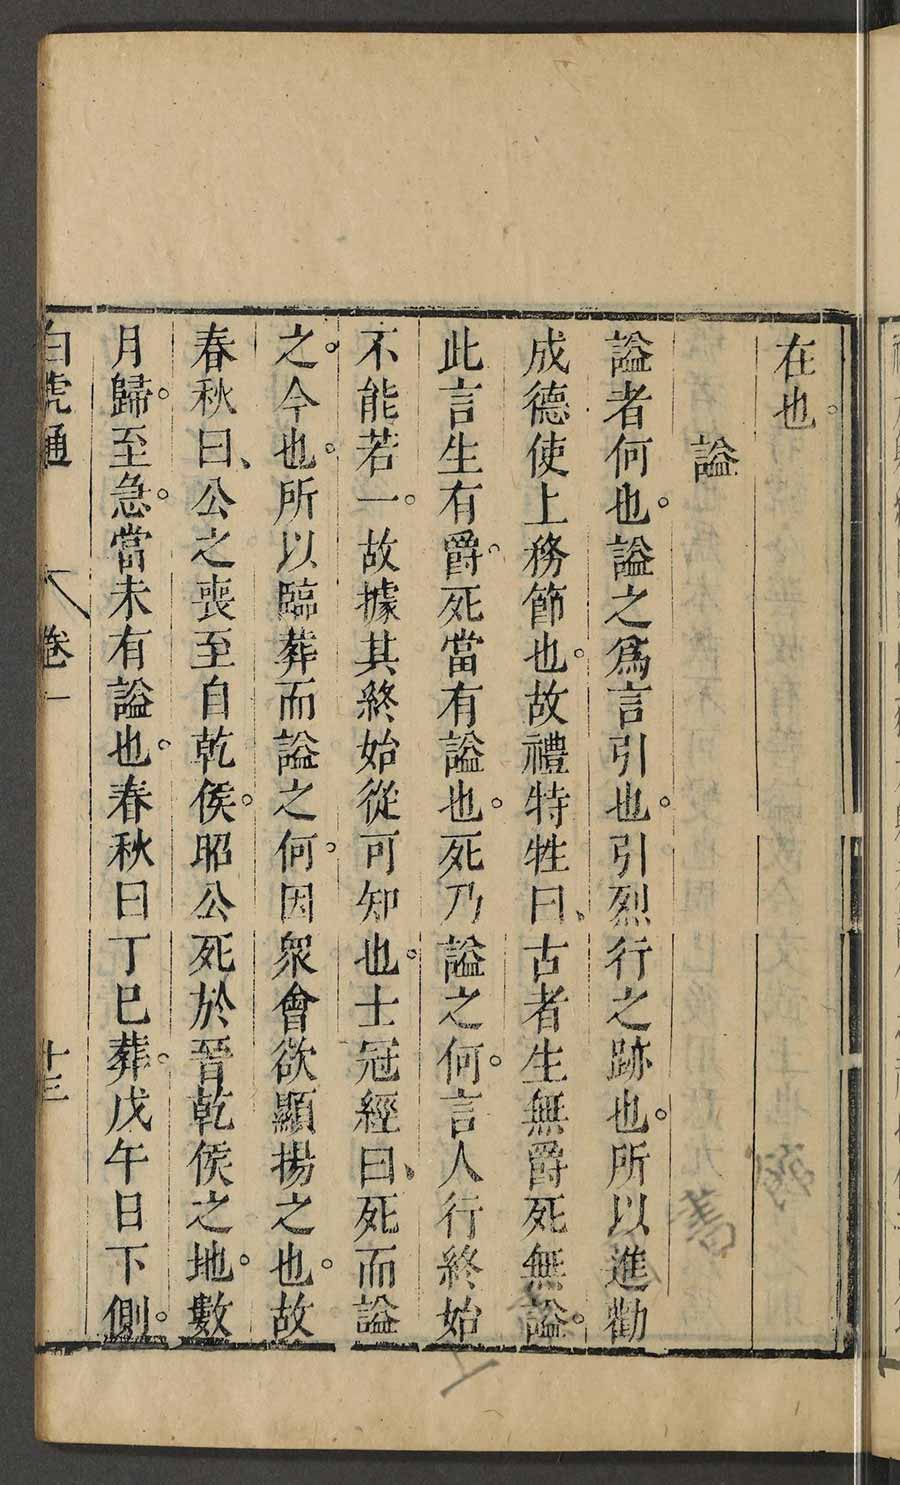 在也。
謚
謚者何也。謚之爲言引也。引烈行之跡也。所以進勸
成德使上務節也。故禮特牲曰、古者生無爵死無謚。
此言生有爵。死當有謚也。死乃謚之何。言人行終始
不能若一。故據其終始從可知也。士冠經曰、死而謚
之。今也。所以臨葬而謚之何。因衆會欲顯揚之也。故
春秋曰、公之喪至自乾侯。昭公死於晉乾侯之地。數
月歸。至急。當未有謚也。春秋曰丁巳葬。戊午日下側。
白虎通 卷一 十三